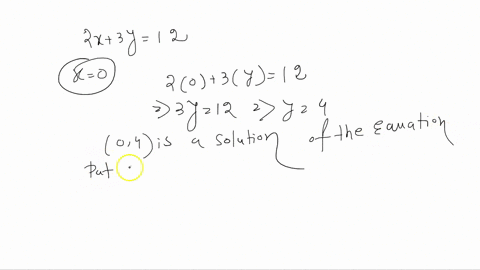 2x+3y=12
x=0
2(0)+3(y)=12
⇒3y=12 ⇒ y=4
(0,4) is a solution of the Equation
Put